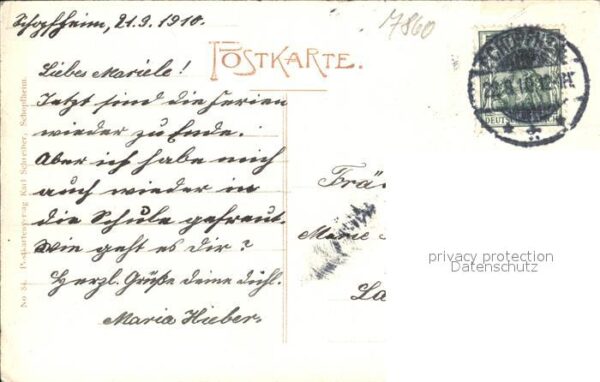 Schopfheim, 21.9.1910.
17860
POSTKARTE.
Liebes Mariele!
Jetzt sind die Ferien
wieder zu Ende.
Aber ich habe mich
auch wieder in
die Schule gefreut.
Wie geht es Dir?
Herzl. Grüße deine dichl.
Maria Hieber.
SCHOPFHEIM
DEUTSCHES REICH
Frä
Marie
La
privacy protection
Datenschutz
No. 84. Postkartenverlag Karl Schreiber, Schopfheim.